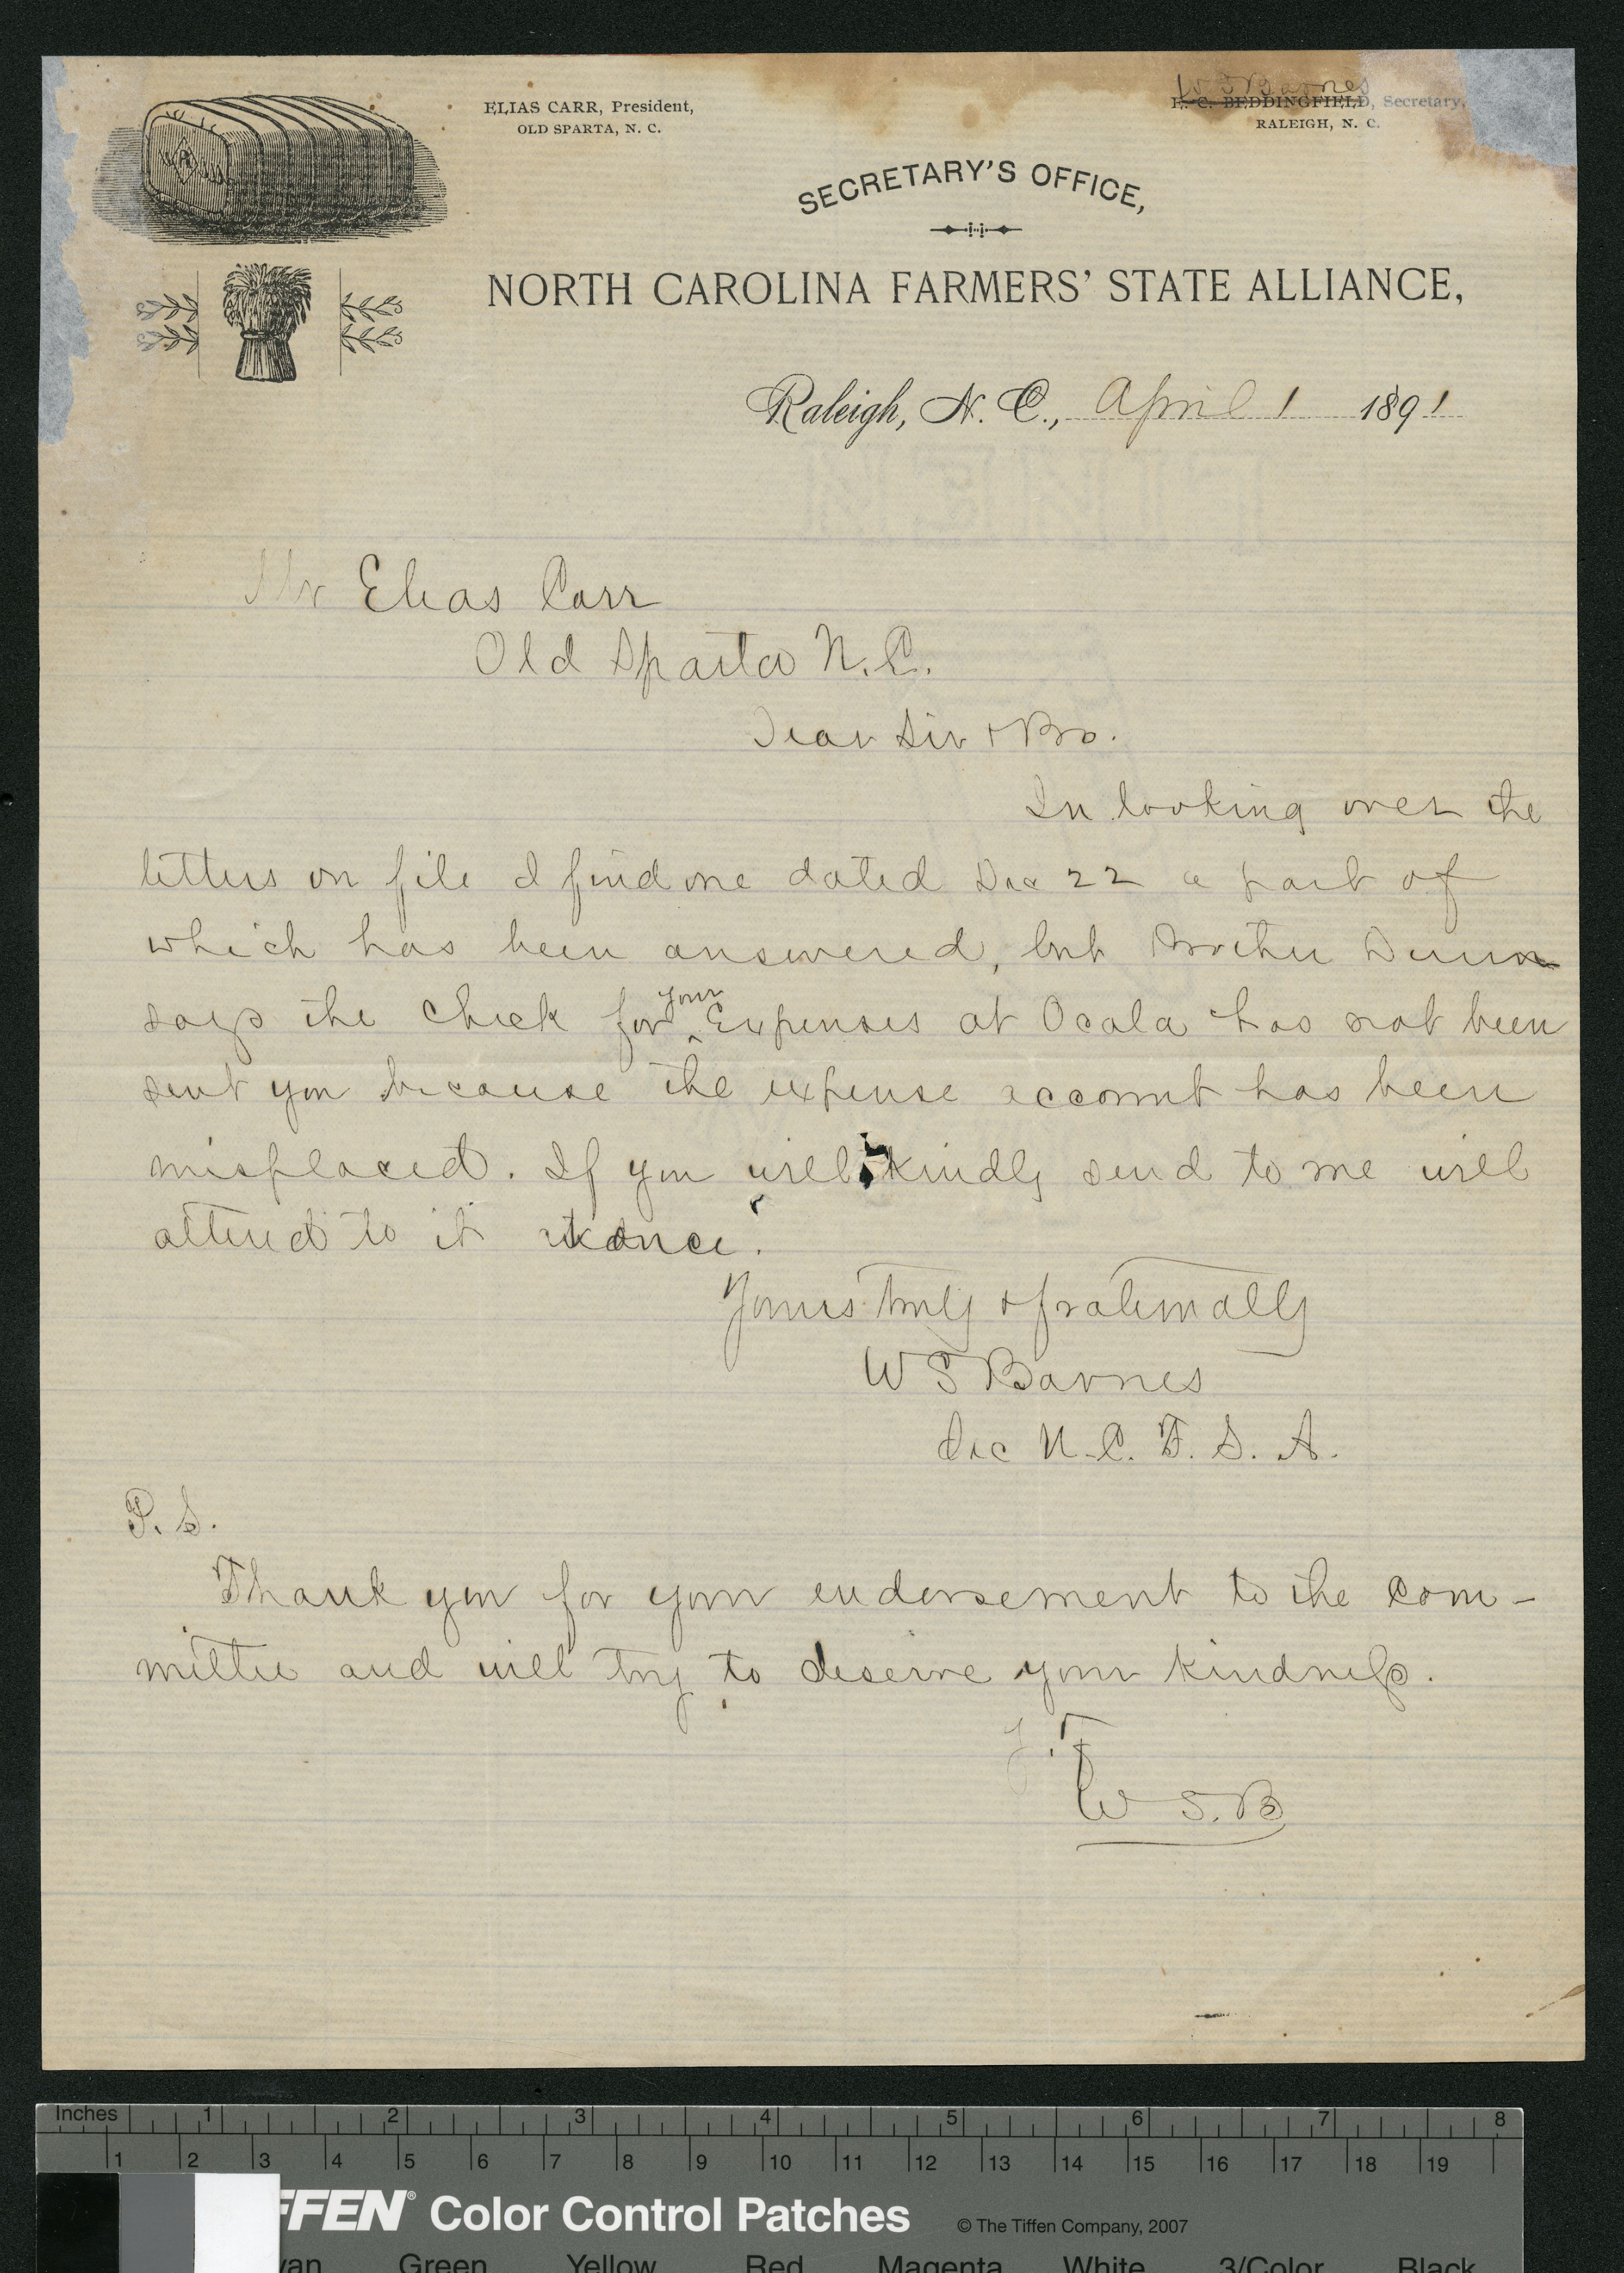 ELIAS CARR, President,
OLD SPARTA, N. C.
W S Barnes
E. C. BEDDINGFIELD, Secretary,
RALEIGH, N. C.
SECRETARY'S OFFICE,
NORTH CAROLINA FARMERS' STATE ALLIANCE,
Raleigh, N. C., April 1 1891
Mr Elias Carr
Old Sparta N.C.
Dear Sir & Bro.
In looking over the
letters on file I find one dated Dec 22 a part of
which has been answered, but Brother Dunn
says the check for your Expenses at Ocala has not been
sent you because the expense account has been
misplaced. If you will kindly send to me will
attend to it at once.
Yours truly & fraternally
W S Barnes
Sec N.C. F. S. A.
P. S.
Thank you for your endorsement to the com-
mittee and will try to deserve your kindness.
Y. T
W S. B
Inches 1 2 3 4 5 6 7 8
1 2 3 4 5 6 7 8 9 10 11 12 13 14 15 16 17 18 19
FFEN® Color Control Patches © The Tiffen Company, 2007
yan Green Yellow Red Magenta White 3/Color Black